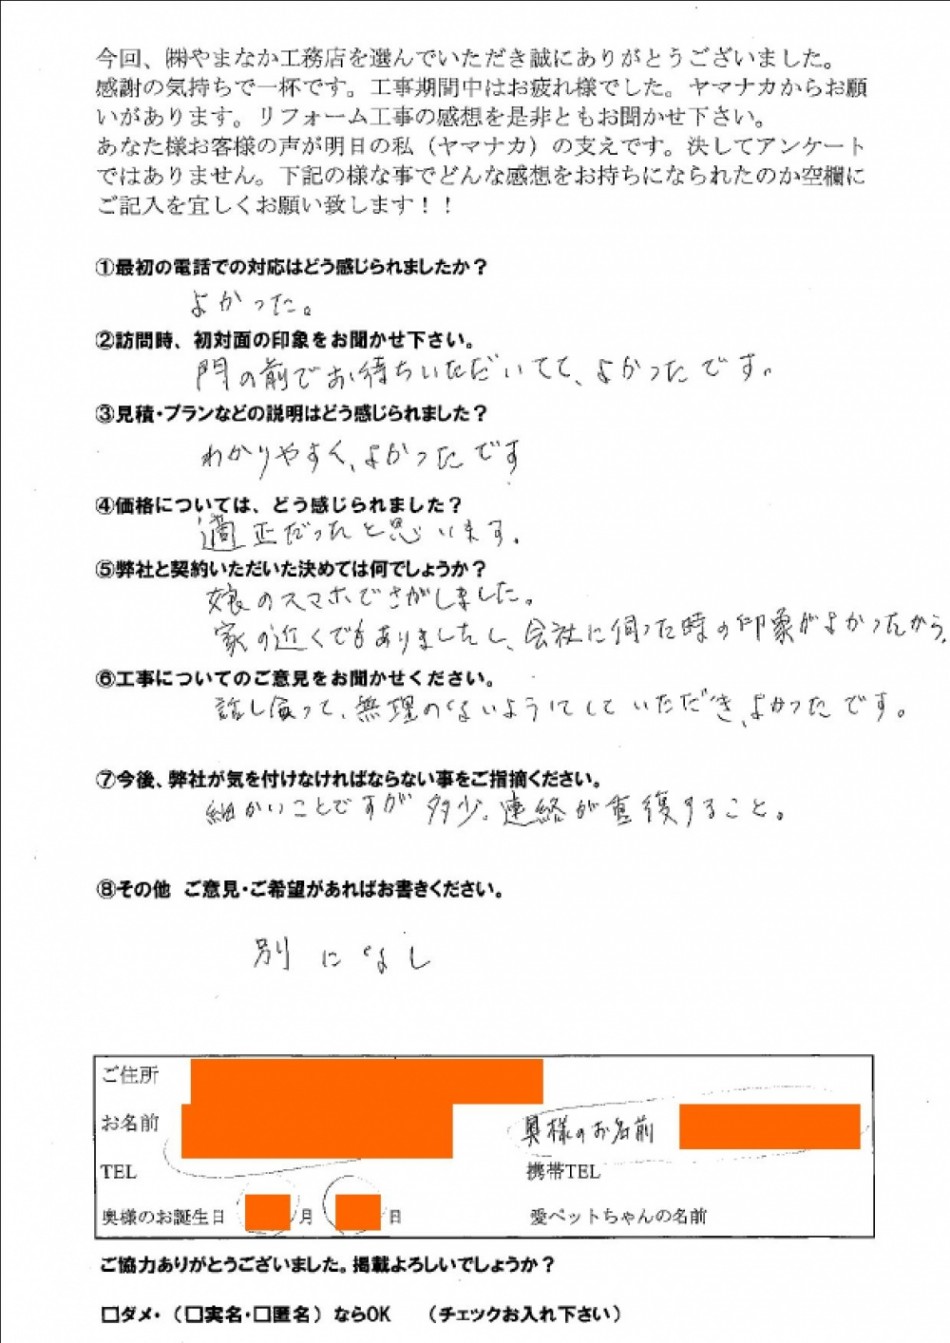 今回、㈱やまなか工務店を選んでいただき誠にありがとうございました。
感謝の気持ちで一杯です。工事期間中はお疲れ様でした。ヤマナカからお願
いがあります。リフォーム工事の感想を是非ともお聞かせ下さい。
あなた様お客様の声が明日の私（ヤマナカ）の支えです。決してアンケート
ではありません。下記の様な事でどんな感想をお持ちになられたのか空欄に
ご記入を宜しくお願い致します！！
①最初の電話での対応はどう感じられましたか？
よかった。
②訪問時、初対面の印象をお聞かせ下さい。
門の前でお待ちいただいてて、よかったです。
③見積・プランなどの説明はどう感じられました？
わかりやすく、よかったです
④価格については、どう感じられました？
適正だったと思います。
⑤弊社と契約いただいた決めては何でしょうか？
娘のスマホでさがしました。
家の近くでもありましたし、会社に伺った時の印象がよかったから、
⑥工事についてのご意見をお聞かせください。
話し合って、無理のないようにしていただき、よかったです。
⑦今後、弊社が気を付けなければならない事をご指摘ください。
細かいことですが多少、連絡が重複すること。
⑧その他 ご意見・ご希望があればお書きください。
別になし
ご住所
お名前 奥様のお名前
TEL 携帯TEL
奥様のお誕生日 月 日 愛ペットちゃんの名前
ご協力ありがとうございました。掲載よろしいでしょうか？
□ダメ・（□実名・□匿名）ならOK （チェックお入れ下さい）